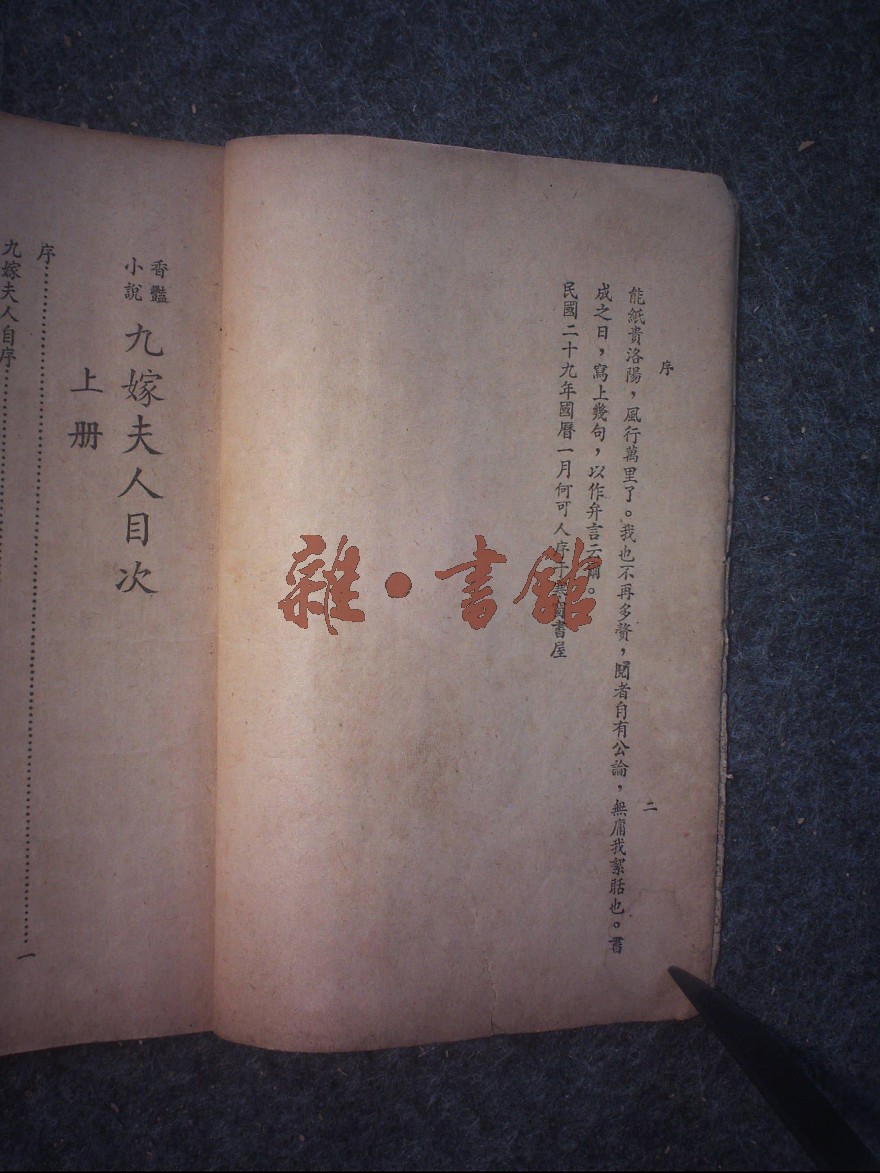 序
二
能紙貴洛陽，風行萬里了。我也不再多贅，閱者自有公論，無庸我絮聒也。書
成之日，寫上幾句，以作弁言云爾。
民國二十九年國曆一月何可人序于無
書屋
雜·書館
香豔
小說
九嫁夫人目次
上册
序
一
九嫁夫人自序